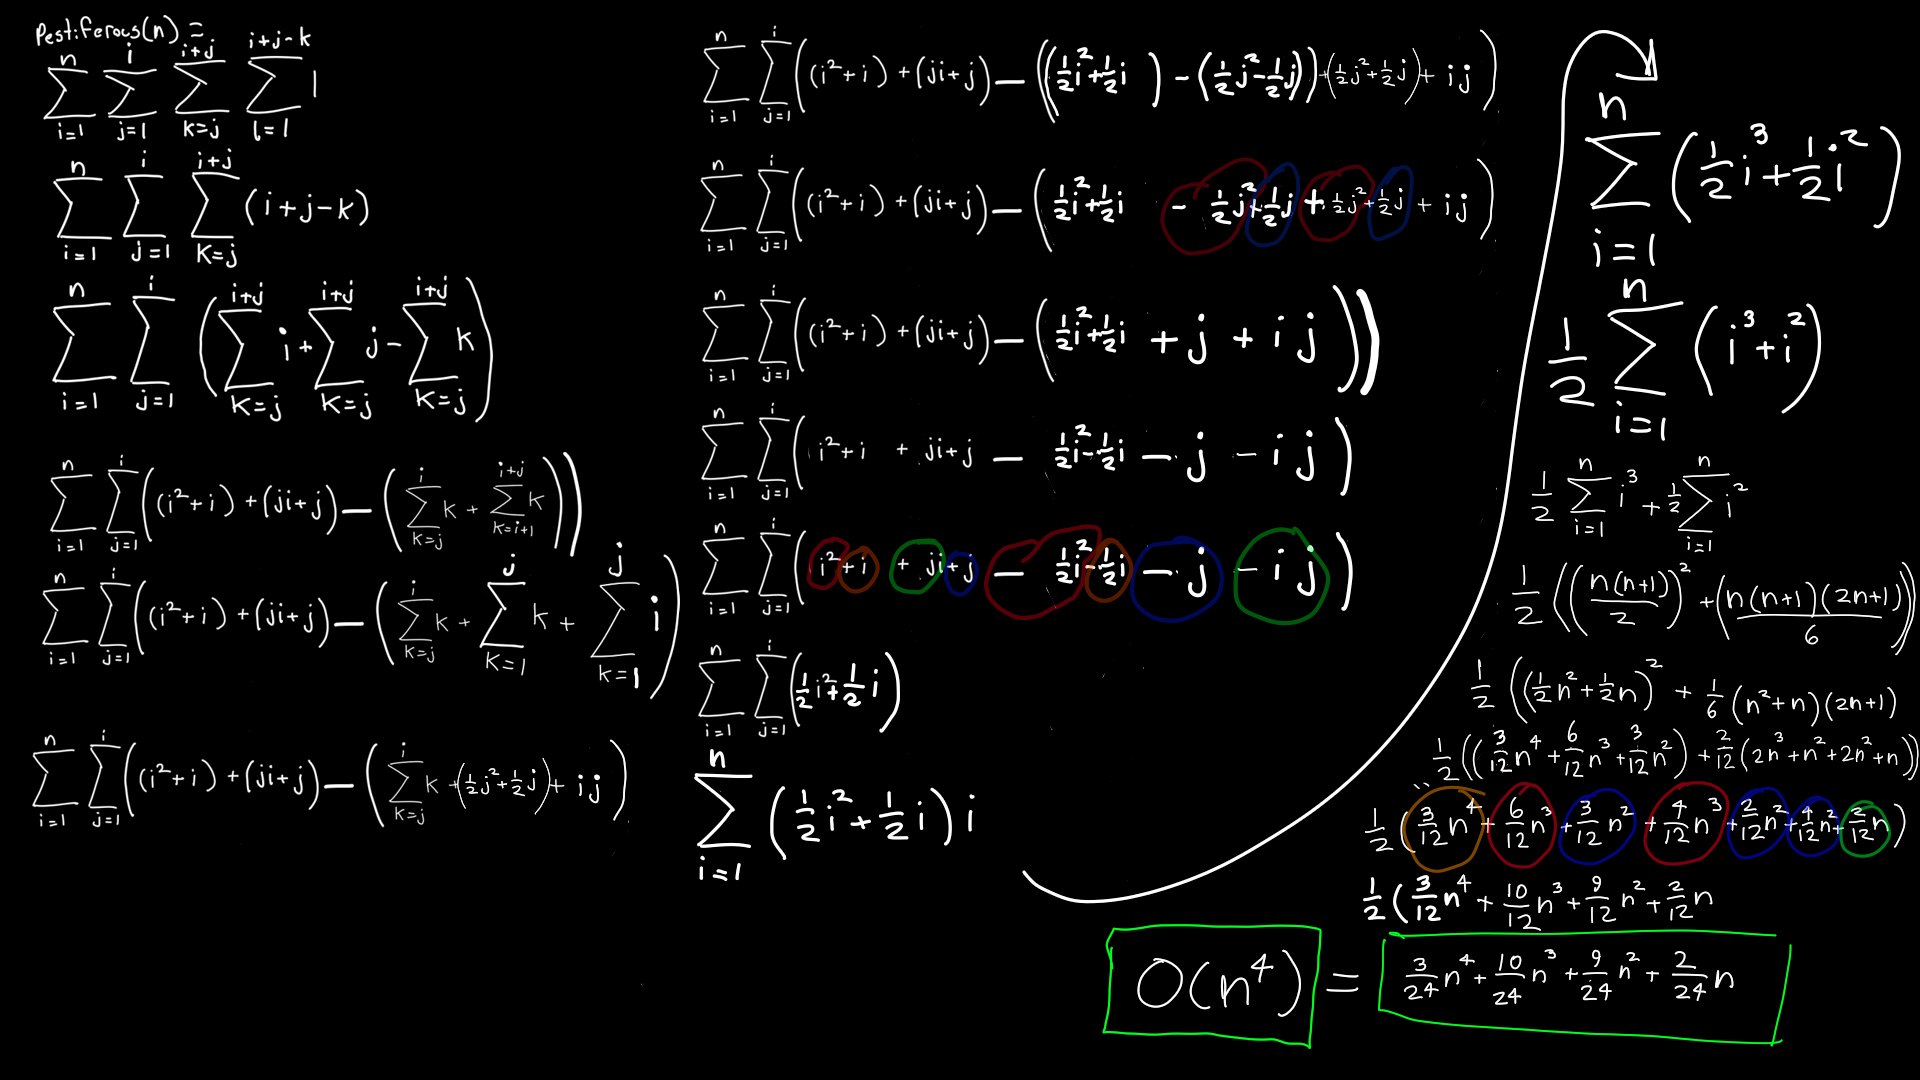 Pestiferous(n) =
∑_{i=1}^{n} ∑_{j=1}^{i} ∑_{k=j}^{i+j} ∑_{l=1}^{i+j-k} 1
∑_{i=1}^{n} ∑_{j=1}^{i} ∑_{k=j}^{i+j} (i+j-k)
∑_{i=1}^{n} ∑_{j=1}^{i} (∑_{k=j}^{i+j} i + ∑_{k=j}^{i+j} j - ∑_{k=j}^{i+j} k)
∑_{i=1}^{n} ∑_{j=1}^{i} ((i²+i) + (ji+j) - (∑_{k=j}^{i} k + ∑_{k=i+1}^{i+j} k))
∑_{i=1}^{n} ∑_{j=1}^{i} ((i²+i) + (ji+j) - (∑_{k=j}^{i} k + ∑_{k=1}^{j} k + ∑_{k=1}^{j} i)
∑_{i=1}^{n} ∑_{j=1}^{i} ((i²+i) + (ji+j) - (∑_{k=j}^{i} k + (1/2 j² + 1/2 j) + ij)
∑_{i=1}^{n} ∑_{j=1}^{i} ((i²+i) + (ji+j) - ((1/2 i² + 1/2 i) - (1/2 j² - 1/2 j)) + (1/2 j² + 1/2 j) + ij)
∑_{i=1}^{n} ∑_{j=1}^{i} ((i²+i) + (ji+j) - (1/2 i² + 1/2 i - 1/2 j² + 1/2 j + 1/2 j² + 1/2 j + ij)
∑_{i=1}^{n} ∑_{j=1}^{i} ((i²+i) + (ji+j) - (1/2 i² + 1/2 i + j + ij))
∑_{i=1}^{n} ∑_{j=1}^{i} (i²+i + ji+j - 1/2 i² - 1/2 i - j - ij)
∑_{i=1}^{n} ∑_{j=1}^{i} (i²+i + ji+j - 1/2 i² - 1/2 i - j - ij)
∑_{i=1}^{n} ∑_{j=1}^{i} (1/2 i² + 1/2 i)
∑_{i=1}^{n} (1/2 i² + 1/2 i) i
∑_{i=1}^{n} (1/2 i³ + 1/2 i²)
1/2 ∑_{i=1}^{n} (i³ + i²)
1/2 ∑_{i=1}^{n} i³ + 1/2 ∑_{i=1}^{n} i²
1/2 ((n(n+1)/2)² + (n(n+1)(2n+1)/6))
1/2 ((1/2 n² + 1/2 n)² + 1/6 (n²+n)(2n+1)
1/2 ((3/12 n⁴ + 6/12 n³ + 3/12 n²) + 2/12 (2n³+n²+2n²+n))
1/2 (3/12 n⁴ + 6/12 n³ + 3/12 n² + 4/12 n³ + 2/12 n² + 4/12 n² + 2/12 n)
1/2 (3/12 n⁴ + 10/12 n³ + 9/12 n² + 2/12 n
O(n⁴) = 3/24 n⁴ + 10/24 n³ + 9/24 n² + 2/24 n